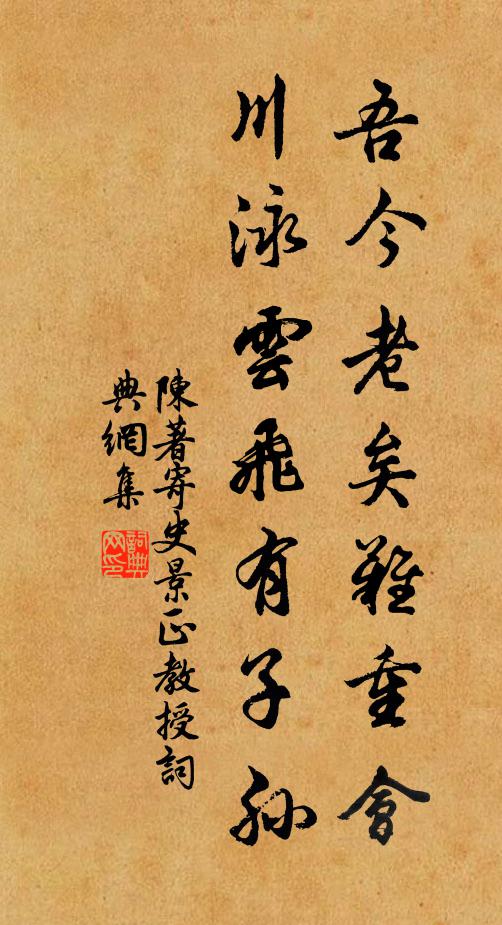 吾今老矣難重會
川泳雲飛有子孫
陳著寄史景正教授詞
典網集
詞典
网印